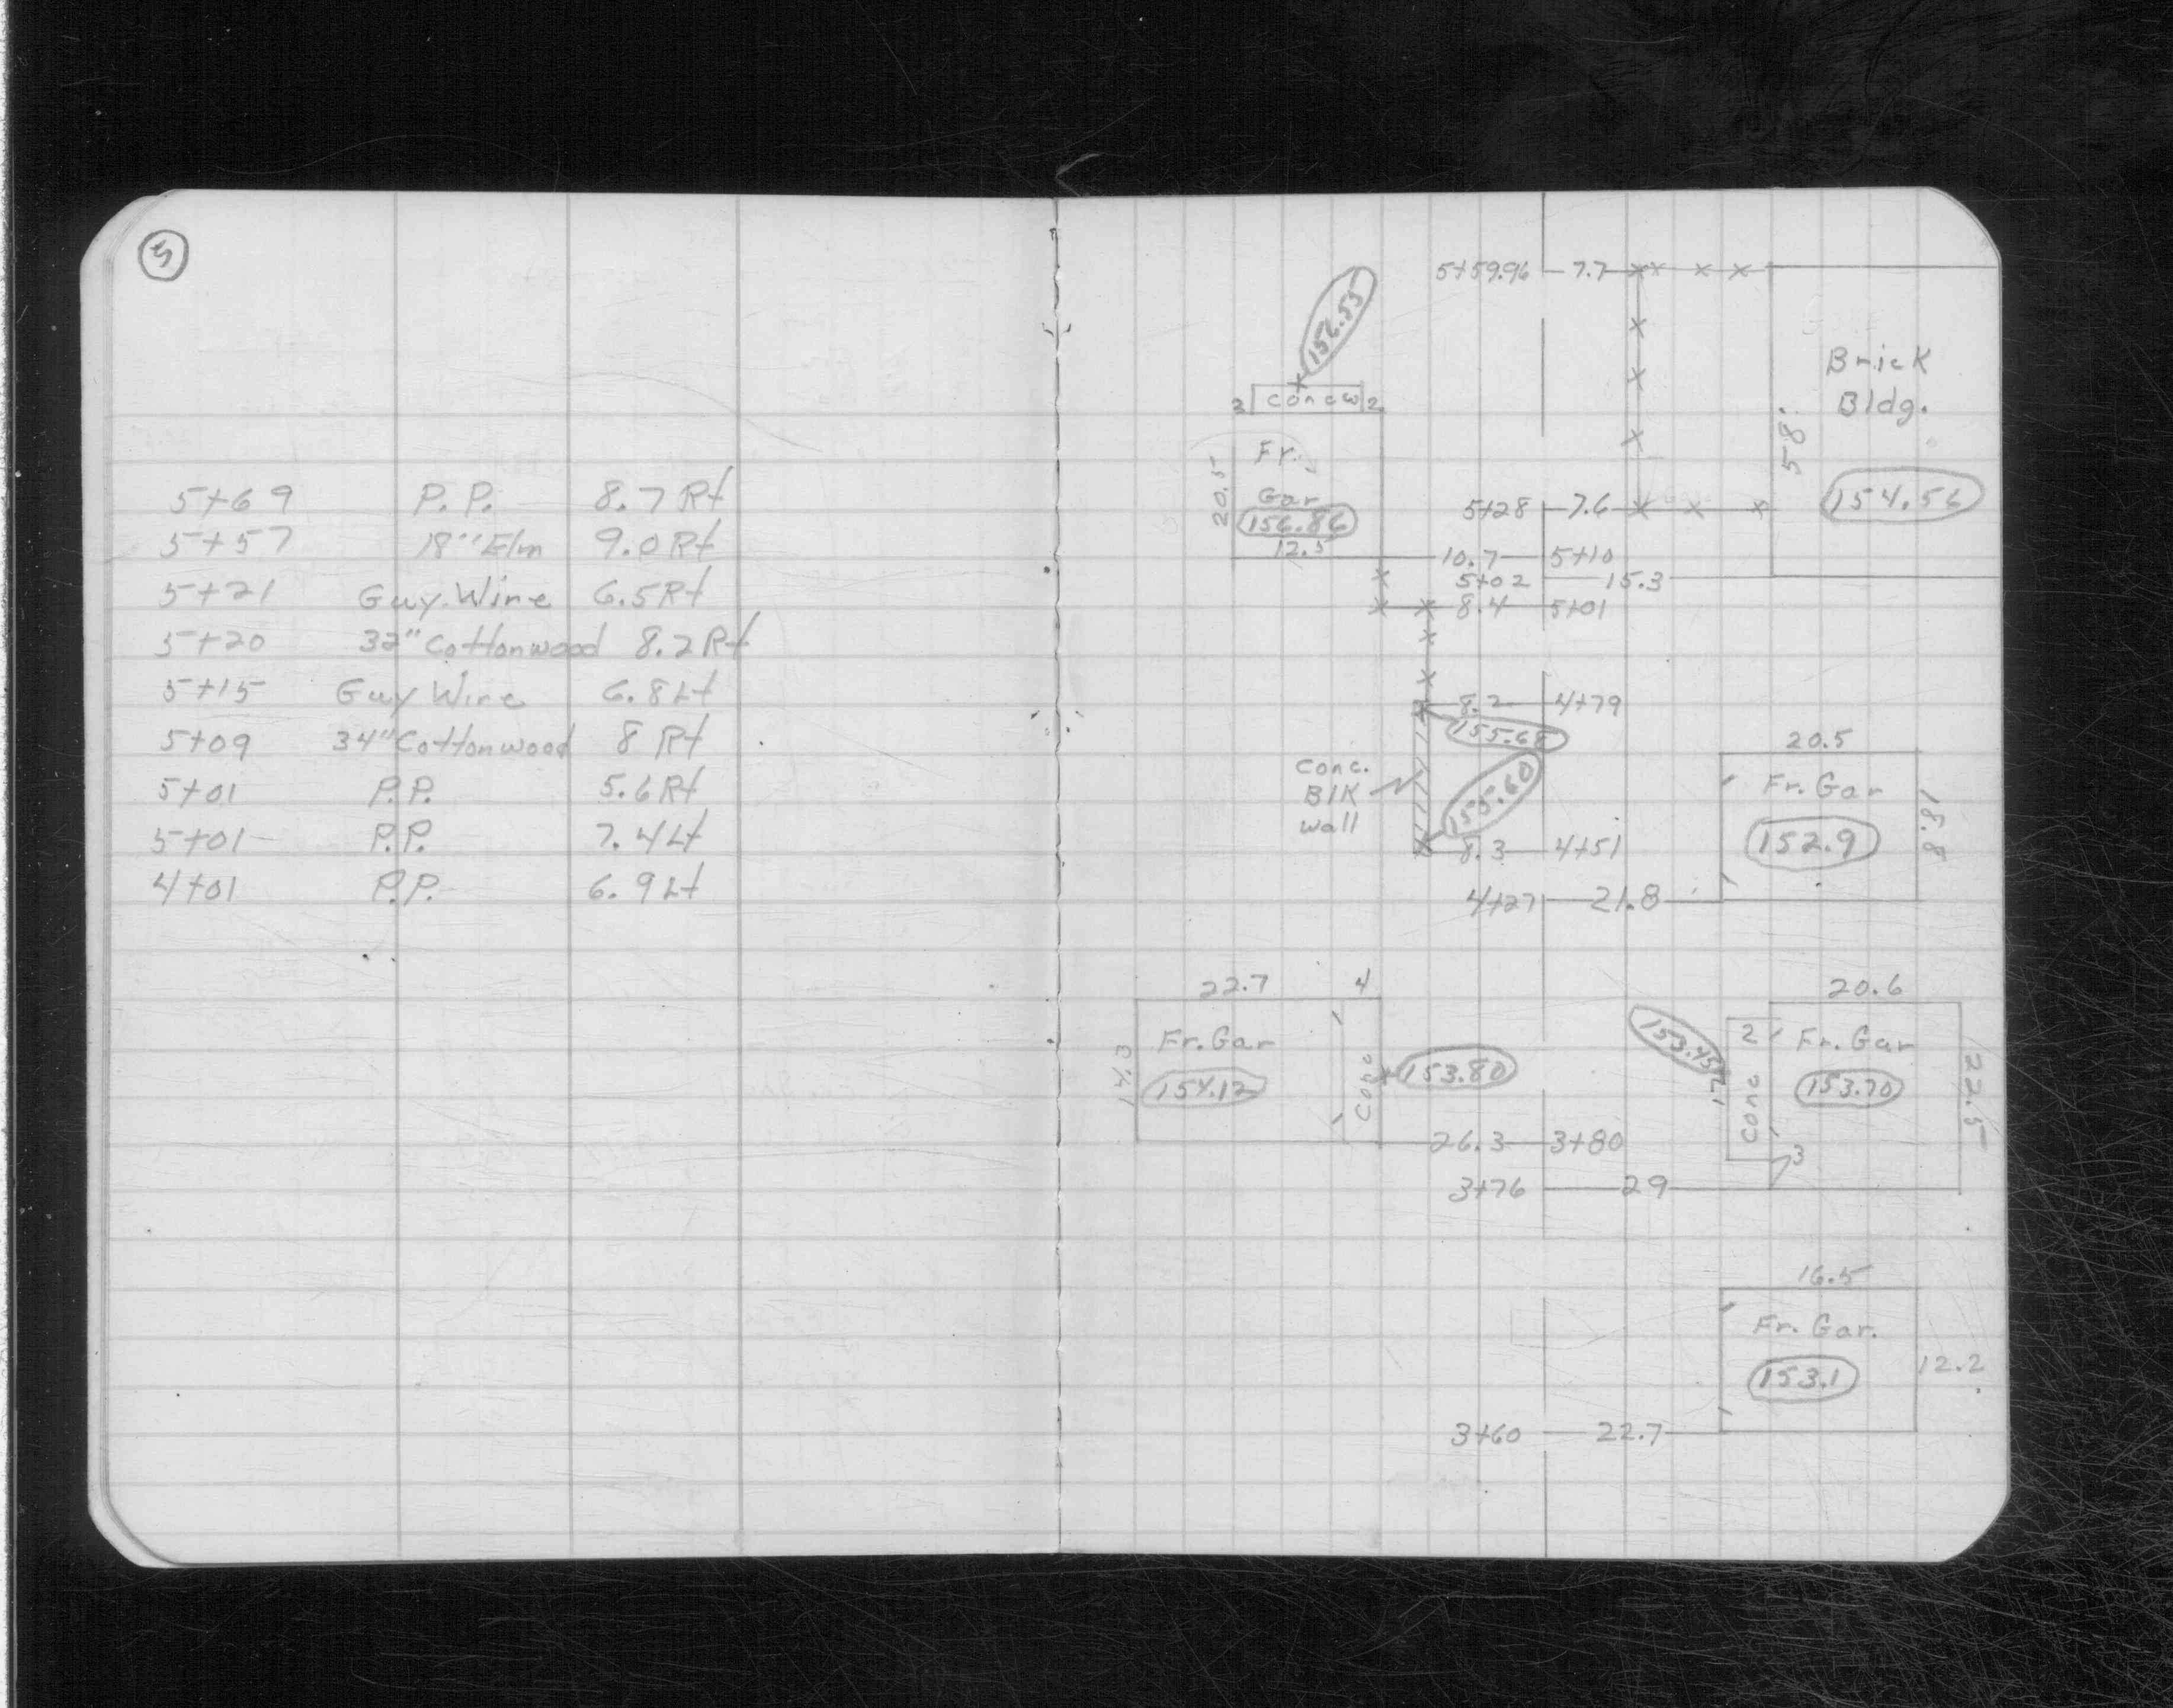 5
5+69 P.P. 8.7 Rt
5+57 18" Elm 9.0 Rt
5+21 Guy Wire 6.5 Rt
5+20 32" Cottonwood 8.2 Rt
5+15 Guy Wire 6.8 Lt
5+09 34" Cottonwood 8 Rt
5+01 P.P. 5.6 Rt
5+01 P.P. 7.4 Lt
4+01 P.P. 6.9 Lt
5+59.96 7.7
156.53
2 Conc 2
Brick
Bldg.
58.
154.56
Fr.
Gar
20.5
156.86
12.5
5+28 7.6
10.7 5+10
5+02 15.3
8.4 5+01
8.2 4+79
155.68
Conc.
Blk
wall
155.60
8.3 4+51
20.5
Fr. Gar
18.8
152.9
4+27 21.8
22.7 4
Fr. Gar
14.3
154.12
Conc
153.80
20.6
153.45
2
Fr. Gar
153.70
Conc
22.5
17
3
26.3 3+80
3+76 29
16.5
Fr. Gar.
153.1
12.2
3+60 22.7